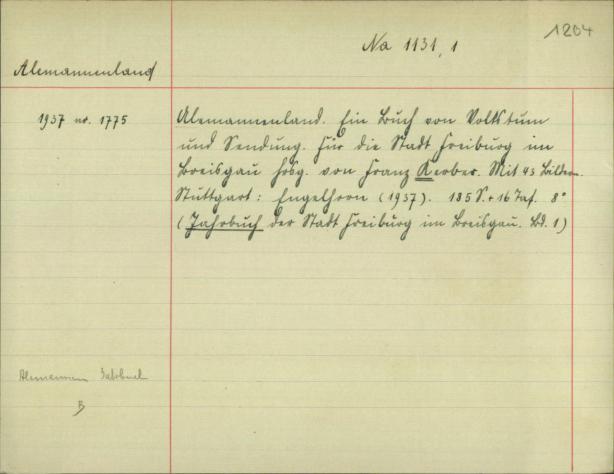 1204
Na 1131, 1
Alemannenland
1937 nr. 1775
Alemannenland. Ein Buch von Volkstum
und Sendung. Für die Stadt Freiburg im
Breisgau hrsg. von Franz Kerber. Mit 43 Bildern.
Stuttgart: Engelhorn (1937). 185 S. + 16 Taf. 8°
(Jahrbuch der Stadt Freiburg im Breisgau. Bd. 1)
Alemannen Jahrbuch
B